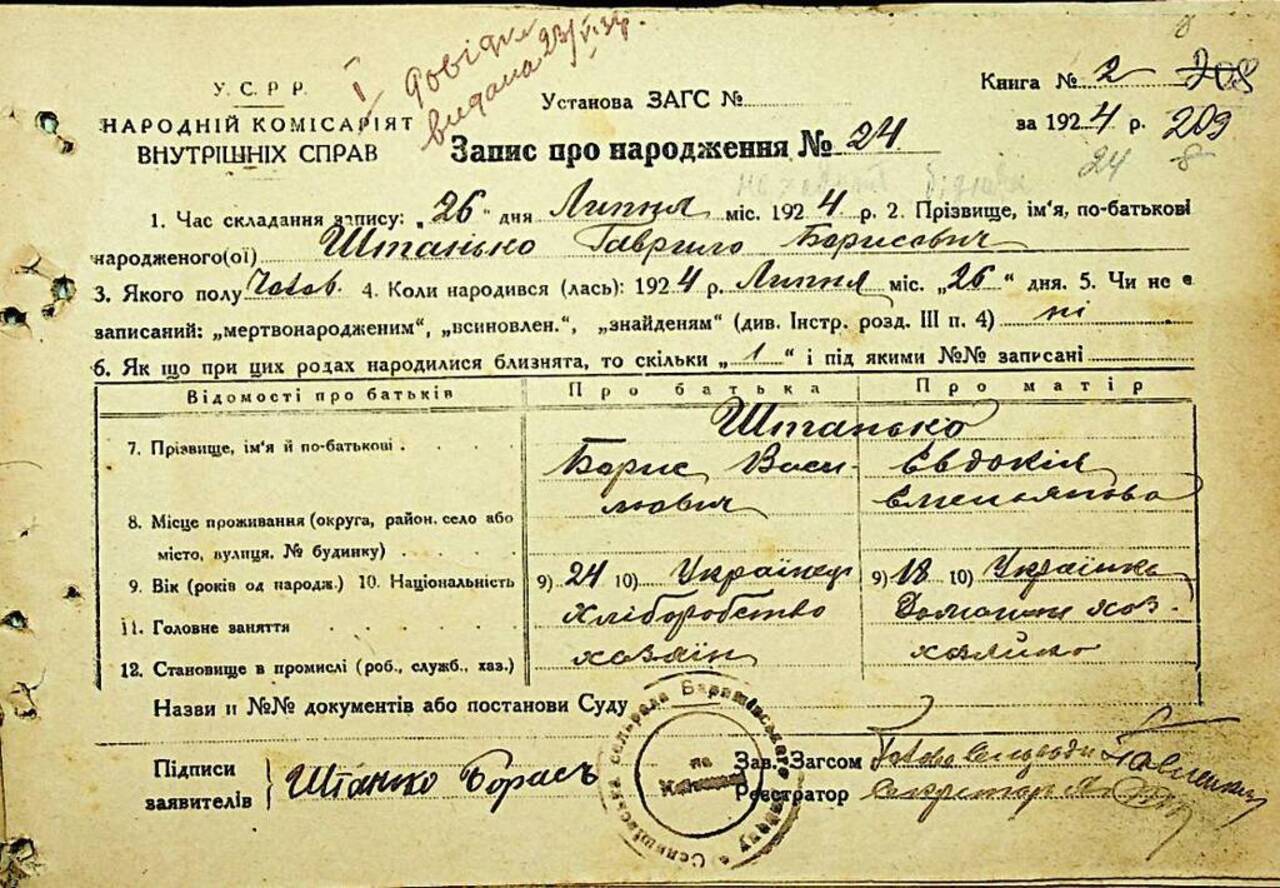 І довідка
видана 23/V.34р.
У. С. Р. Р.
НАРОДНІЙ КОМІСАРІЯТ
ВНУТРІШНІХ СПРАВ
Установа ЗАГС №
Книга № 2 208
за 1924 р. 209
Запис про народження № 24
24 8
1. Час складання запису: „26“ дня Липня міс. 1924 р. 2. Прізвище, ім'я, по-батькові
народженого(ої) Штанько Гаврило Борисович
3. Якого полу Чолов. 4. Коли народився (лась): 1924 р. Липня міс. „26“ дня. 5. Чи не є
записаний: „мертвонародженим“, „всиновлен.“, „знайденям“ (див. Інстр. розд. III п. 4) ні
6. Як що при цих родах народилися близнята, то скільки „1“ і під якими №№ записані
Відомості про батьків Про батька Про матір
7. Прізвище, ім'я й по-батькові Штанько
Борис Васи- Євдокія
льович Емельянова
8. Місце проживання (округа, район, село або
місто, вулиця, № будинку)
9. Вік (років од народж.) 10. Національність 9) 24 10) Українець 9) 18 10) Українка
11. Головне заняття Хліборобство Домашнє хоз.
12. Становище в промислі (роб., служб., хаз.) хозяїн хазяйка
Назви и №№ документів або постанови Суду
Підписи
заявителів Штанко Борасъ
Селищівська сельрада Барашівського району
на
Зав. Загсом Голова Сельради Павленко
Реєстратор Секретар